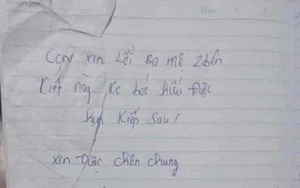 Con xin Lỗi ba mẹ 2 bên
Kiếp này Ko báo hiếu được
hẹn Kiếp Sau!
xin Được chôn chung